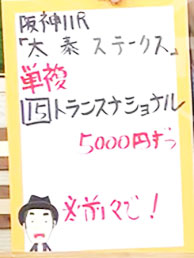 阪神11R
『太秦ステークス』
単複
15トランスナショナル
5000円ずつ
※前々で!